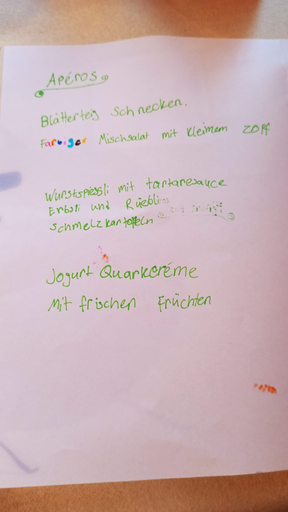 Apéros
Blätterteig Schnecken.
Farbiger Mischsalat mit kleinem Zopf
Wurstspiessli mit tartaresauce
Erbsli und Rüebli
Schmelzkartoffeln
Jogurt Quarkcréme
Mit frischen Früchten